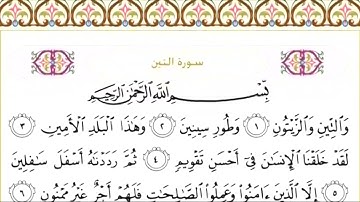 سورة التين
بِسْمِ اللَّهِ الرَّحْمَٰنِ الرَّحِيمِ
وَالتِّينِ وَالزَّيْتُونِ ١ وَطُورِ سِينِينَ ٢ وَهَٰذَا الْبَلَدِ الْأَمِينِ ٣
لَقَدْ خَلَقْنَا الْإِنسَانَ فِي أَحْسَنِ تَقْوِيمٍ ٤ ثُمَّ رَدَدْنَاهُ أَسْفَلَ سَافِلِينَ
٥ إِلَّا الَّذِينَ ءَامَنُوا وَعَمِلُوا الصَّالِحَاتِ فَلَهُمْ أَجْرٌ غَيْرُ مَمْنُونٍ ٦